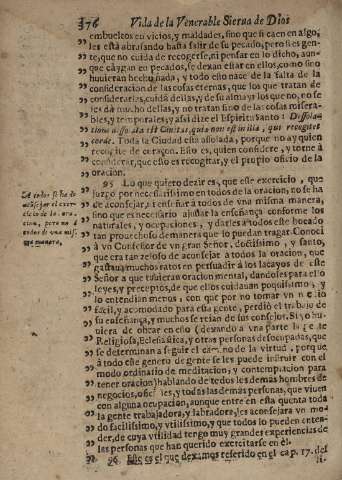 376 Vida de la Venerable Sierua de Dios
embueltos en vicios, y maldades, sino que si caen en algo,
les està abrasando hasta salir de su pecado, pero si es gente,
que no cuida de recogerse, ni pensar en lo dicho, aunque
càygan en pecados, se dexan estar en ellos, como si no
huuieran hecho nada, y todo esto nace de la falta de la
consideracion de las cosas eternas, que los que tratan de
considerarlas, cuidã dellas, y de su alma, y los que no, no se
les dà mucho dellas, y no tratan sino de las cosas miserables,
y temporales, y assi dize el Espiritu Santo: Dissolatione
dissolata est Ciuitas, quia non est in illa, qui recogitet
corde. Toda la Ciudad està assolada, porque no ay quien
recogite de coraçon. Esso es, quien considere, y torne à
considerar, que esso es recogitar, y el propio oficio de la
oracion.
95 Lo que quiero dezir es, que este exercicio, que
juzgo por necessarissimo en todos de la oracion, no se ha
de aconsejar, ni enseñar à todos de vna misma manera,
sino que es necessario ajustar la enseñança conforme los
naturales, y ocupaciones, y darles à todos este bocado
tan prouechoso de maneras que lo puedan tragar. Conocì
à vn Confessor de vn gran Señor, doctissimo, y santo,
que era tan zeloso de aconsejar à todos la oracion, que
gastaua muchos ratos en persuadir à los lacayos de este
Señor à que tuuieran oracion mental, dandoles para ello
leyes, y preceptos, de que ellos cuidauan poquissimo, y
lo entendian menos, con que por no tomar vn medio
facil, y acomodado para esta gente, perdiò el trabajo de
su enseñança, y muchos se reian de sus consejos. Si yo huuiera
de obrar en esto (dexando à vna parte la gente
Religiosa, Eclesiastica, y otras personas desocupadas, que
se determinan a seguir el camino de la virtud, porque
à todo este genero de gente se les puede instruir con el
modo ordinario de meditacion, y contemplacion para
tener oracion) hablando de todos los demàs hombres de
negocios, oficiales, y todas las demàs personas, que viuen
con alguna ocupacion, aunque entre en esta quenta toda
la gente trabajadora, y labradora, les aconsejara vn modo
facilissimo, y vtilissimo, y que todos lo pueden entender,
de cuya vtilidad tengo muy grandes experiencias de
las personas que han querido exercitarse en èl.
96 Este es el que dexamos referido en el cap. 17. del
li-
A todos se ha de
aconsejar el exercicio
de la oracion,
pero no à
todos de vna misma
manera,